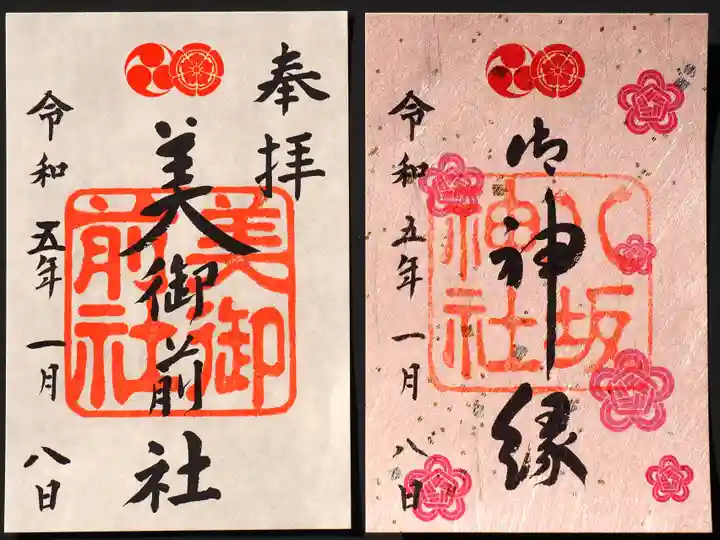 奉拝
美御前社
美御前社
令和五年一月八日
御神縁
八坂神社
令和五年一月八日